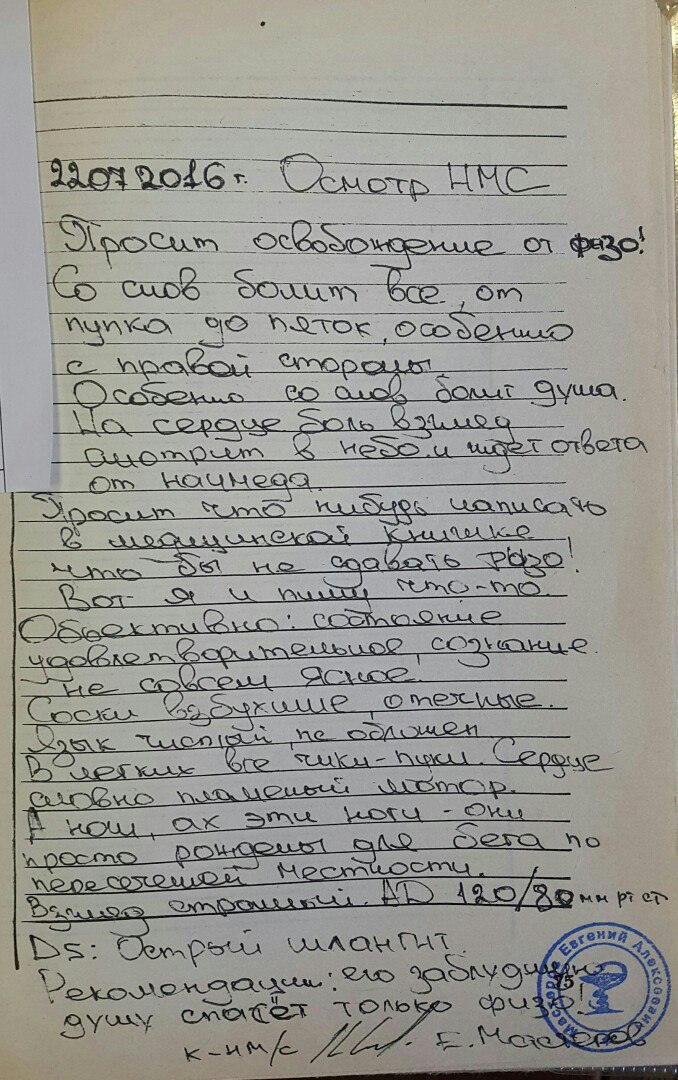 22072016 г. Осмотр НМС
Просит освобождение от физо!
Со слов болит все, от
пупка до пяток, особенно
с правой стороны
Особенно со слов болит душа.
На сердце боль взгляд
смотрит в небо и ждет ответа
от начмеда.
Просит что нибудь написать
в медицинской книжке
что бы не сдавать физо!
Вот я и пишу что-то.
Объективно: состояние
удовлетворительное, сознание
не совсем ясное!
Соски взбухшие, отечные.
Язык чистый, не обложен
В легких все чики-пуки. Сердце
словно пламеный мотор.
А ноги, ах эти ноги - они
просто рождены для бега по
пересеченой местности.
Взгляд страшный. AD 120/80 мм рт ст
Ds: Острый шлангит.
Рекомендации: его заблудшую
душу спасёт только физо!
к-н м/с Е.
Евгений